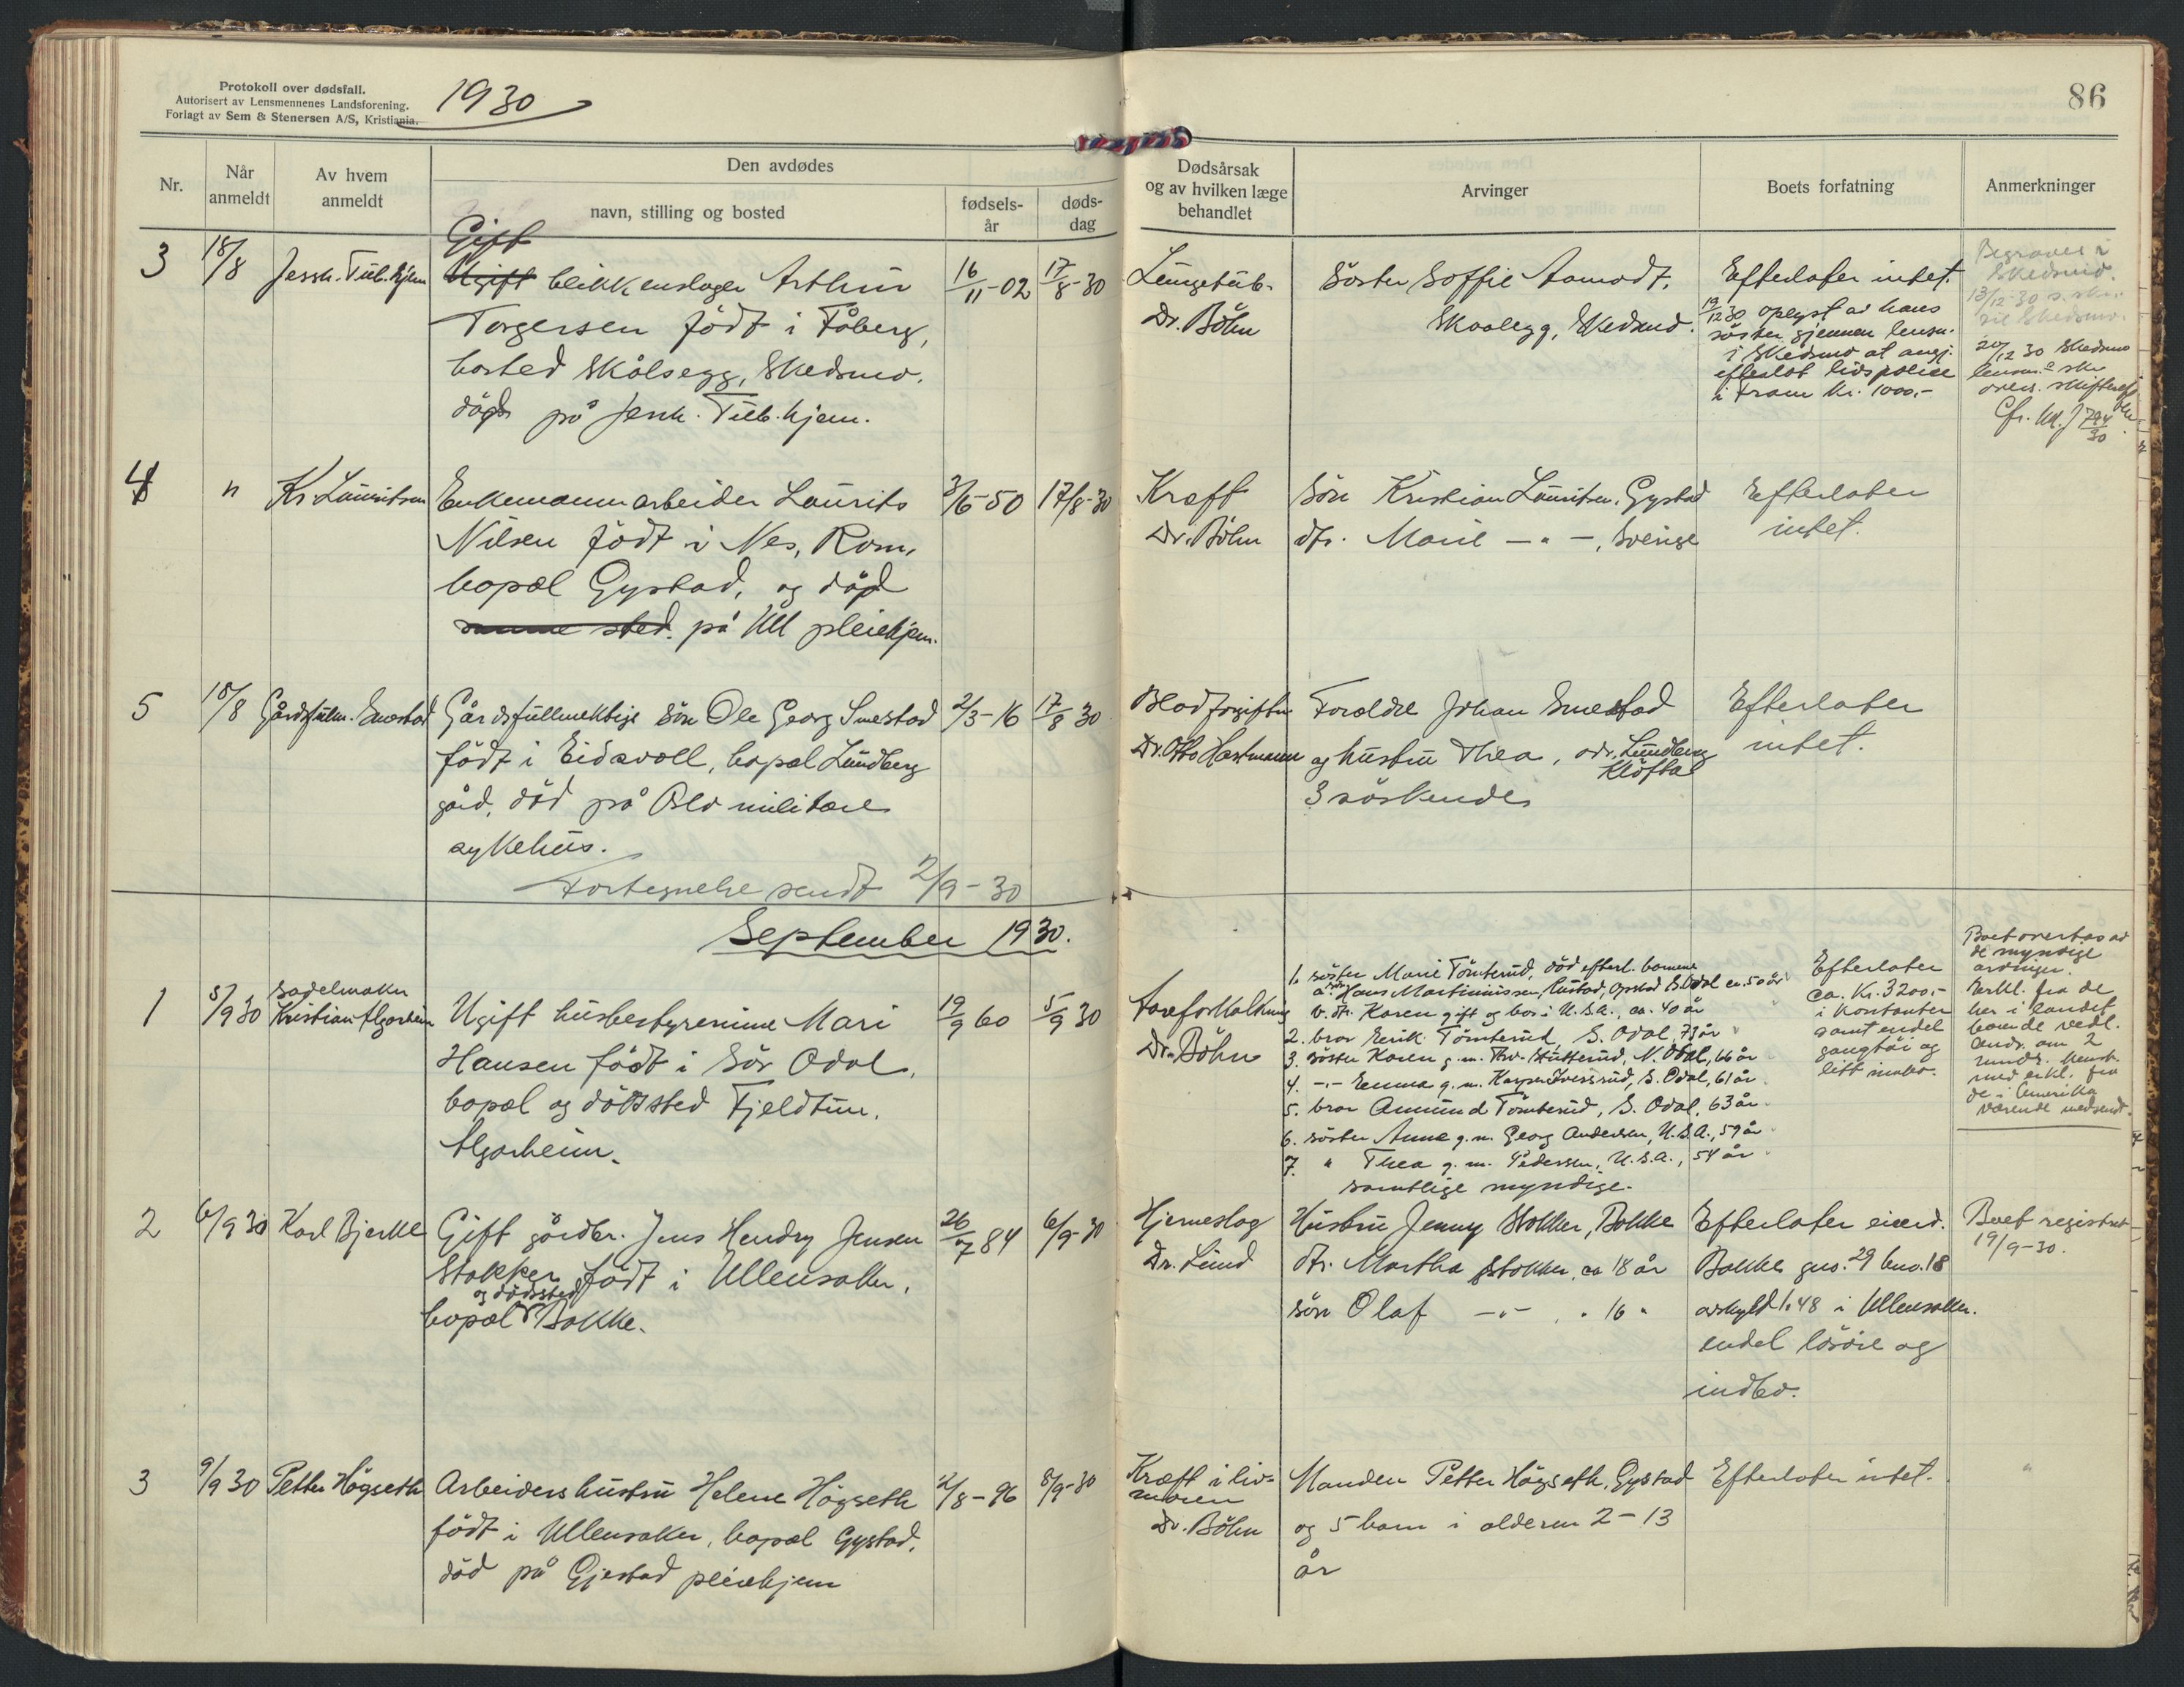 Protokoll over dødsfall.
Autorisert av Lensmennenes Landsforening.
Forlagt av Sem & Stenersen A/S, Kristiania.
1930
86
Nr.
Når anmeldt
Av hvem anmeldt
Den avdødes
navn, stilling og bosted
fødsels-år
døds-dag
Dødsårsak og av hvilken læge behandlet
Arvinger
Boets forfatning
Anmerkninger
3
18/8
Jessh. Tub.hjem
Gift
Ugift blikkenslager Arthur
Torgersen född i Fåberg,
bosted Skålsegg, Skedsmo.
död på Jessh. Tub.hjem.
16/11-02
17/8-30
Lungetub.
Dr. Böhn
Söster Soffie Aamodt,
Skaalegg, Skedsmo.
Efterlater intet.
19/12 30 oplyst av hans
söster gjennem lensm.
i Skedsmo at angj.
efterlot livspolise
i Fram kr. 1000.-
Begraves i
Skedsmo.
13/12-30 s. skr.
til Skedsmo.
20/12 30 Skedsmo
4
"
Kr. Lauritsen
Enkemann arbeider Laurits
Nilsen född i Nes, Rom,
bopæl Gystad, og död
samme sted. på Ull pleiehjem.
3/6-50
17/8-30
Kreft
Dr. Böhn
Sön Kristian Lauritsen, Gystad
dtr. Marie — " —, Sverige
Efterlater
intet.
5
18/8
Gårdsfullm. Smestad
Gårdsfullmektige sön Ole Georg Smestad
född i Eidsvoll, bopæl Lundberg
gård, död på Oslo militære
sykehus.
2/3-16
17/8 30
Blodforgiftn.
Dr. Otto Hartmann
Foreldre Johan Smestad
og hustru Thea, adr. Lundberg
Klöfta
3 söskende
Efterlater
intet.
Fortegnelse sendt 2/9-30
September 1930.
1
5/9 30
Sadelmaker
Kristian Algarheim
Ugift husbestyrerinne Mari
Hansen född i Sör Odal,
bopæl og dödssted Fjeldtun,
Algarheim.
19/9 60
5/9 30
Åreforkalkning
Dr. Böhn
1. söster Marie Tömterud, död efterl. barnene
a. Hans Martinnissen, Rustad, Opstad S. Odal ca. 50 år
b. dtr. Karen gift og bor i U.S.A., ca. 40 år
2. bror Eerik Tömterud, S. Odal, 73 år
3. söster Karen g.m. Thv. Stutterud, N. Odal, 66 år
4. -"- Emma g.m. Kasper Iversrud, S. Odal, 61 år
5. bror Amund Tömterud, S. Odal, 63 år
6. söster Anne g.m. Georg Andersen, U.S.A., 59 år
7. " Thea g.m. Pedersen, U.S.A., 54 år
samtlige myndige.
Efterlater
ca. kr. 3200.-
i kontanter
samt endel
gangtöi og
litt innbo.
Boet overtas av
de myndige
arvinger.
Erkl. fra de
her i landet
boende vedl.
de i Amerika
værende medsendt.
2
6/9 30
Karl Bjerke
Gift gårdbr. Jens Hendry Jensen
Stokker född i Ullensaker,
og dödssted
bopæl Bakke.
26/7 84
6/9-30
Hjerneslag
Dr. Lund
Hustru Jenny Stokker, Bakke
dtr. Martha Stokker, ca 18 år
sön Olaf -"- , " 16 "
Efterlater eiend.
Bakke gnr. 29 bnr. 18
avskyld 1.48 i Ullensaker.
endel lösöre og
indbo.
Boet registrert
19/9-30.
3
9/9 30
Petter Högseth
Arbeiders hustru Helene Högseth
född i Ullensaker, bopæl Gystad,
död på Gjestad pleiehjem
2/8-96
8/9-30
Kræft i liv-
moren
Dr. Böhn
Manden Petter Högseth, Gystad
og 5 barn i alderen 2-13
år
Efterlater intet.
"